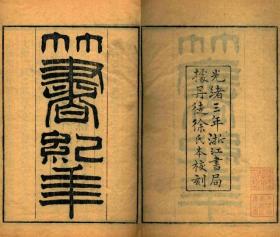 竹書紀年
光緒三年浙江書局
據丹徒徐氏本校刻